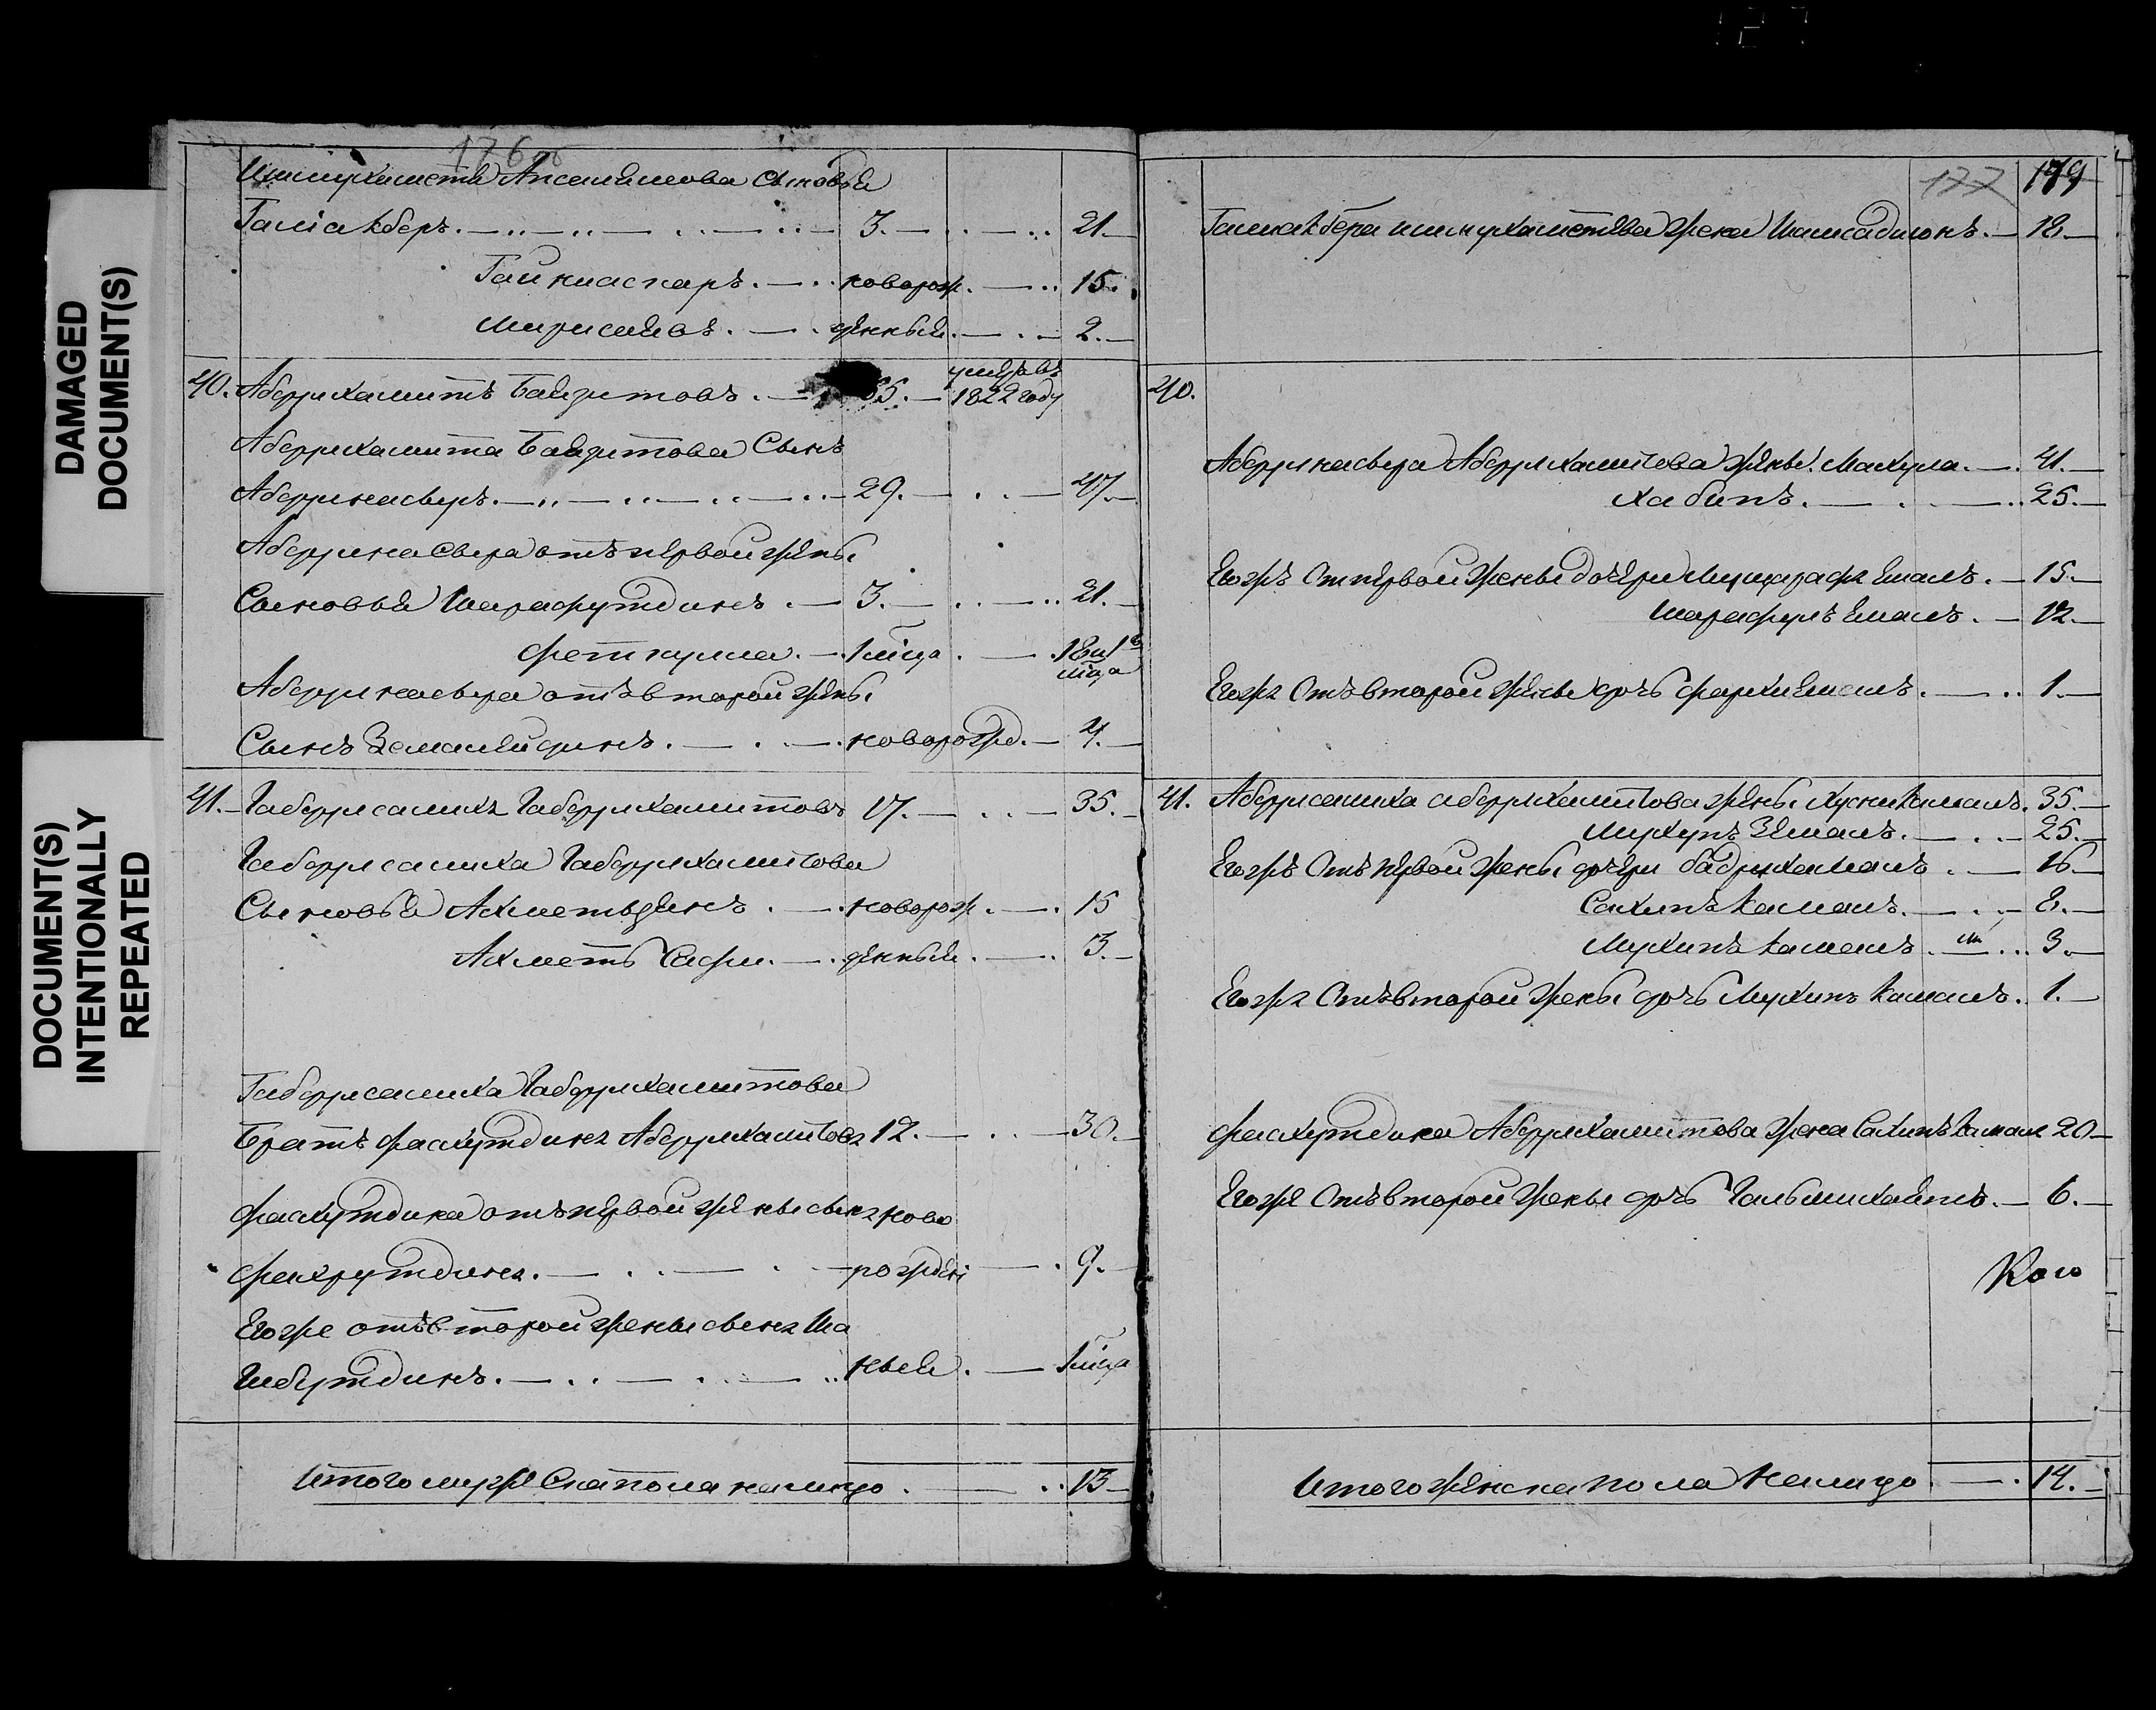 DAMAGED
DOCUMENT(S)
DOCUMENT(S)
INTENTIONALLY
REPEATED
176 об
Ишмухаметя Апсалямова сыновья
Галіакберъ. 3. 21.
Гайниаскаръ. новорож. 15.
Мирисаявъ. дѣнныя. 2.
40. Абдрихамитъ Баязитовъ. 65. умѣръ въ 1822 году
Абдрихамита Баязитова сынъ
Абдринасыръ. 29. 47.
Абдринасыра отъ первой жѣны
сыновья Шарафутдинъ. 3. 21.
Феткулла. 1 мца. 18 и 1 мца
Абдринасыра отъ второй жѣны
сынъ Земалйдинъ. новорожд. 4.
41. Габдрисалихъ Габдрихамитовъ 17. 35.
Габдрисалиха Габдрихамитова
сыновья Ахметьдянъ. новорож. 15
Ахметь Сафи. дѣнныя. 3.
Габдрисалиха Габдрихамитова
братъ Фасхутдинъ Абдрихамитовъ 12. 30.
Фасхутдина отъ первой жѣны сынъ ново
Фахрутдинъ. рождѣн 9.
Егоже отъ второй жены сынъ Ша
гибутдинъ. ныя. 1 мца
Итого мужеска пола налицо. 13
177 179
Галиакбера Ишмухаметева жена Шамсадиюнъ. 18.
40.
Абдринасыра Абдрихамитова жѣны: Махула. 41.
Хабипъ. 25.
Егожъ от первой жены дочери Мушарафъ Емалъ. 15.
Шарафулъ Емалъ. 12.
Егожъ отъ второй жѣны дочь Фархи Емалъ. 1.
41. Абдрисалиха Абдрихамитова жѣны Хусникамалъ. 35.
Мухупъ Земалъ. 25.
Егожъ отъ первой жены дочери Бадрикамалъ. 16.
Сахипъ Камалъ. 8.
Мухипъ Камалъ. 3.
Егожъ отъ второй жены дочь Мухипъ Камалъ. 1.
Фасхутдина Абдрихамитова жена Сахипъ Камал 20
Егожъ отъ второй жены дочь Гальмихаятъ. 6.
Итого жѣнска пола налицо. 14.